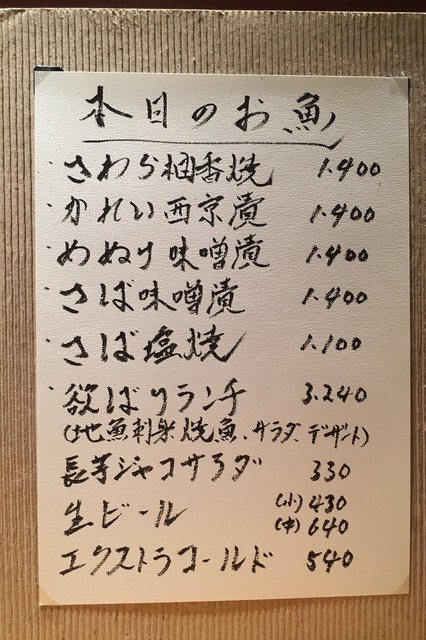 本日のお魚
・さわら柚香焼 1.400
・かれい西京漬 1.400
・めぬり味噌漬 1.400
・さば味噌漬 1.400
・さば塩焼 1.100
・欲ばりランチ 3.240
(地魚刺身、焼魚、サラダ、デザート)
長芋ジャコサラダ 330
生ビール (小) 430
(中) 640
エクストラコールド 540